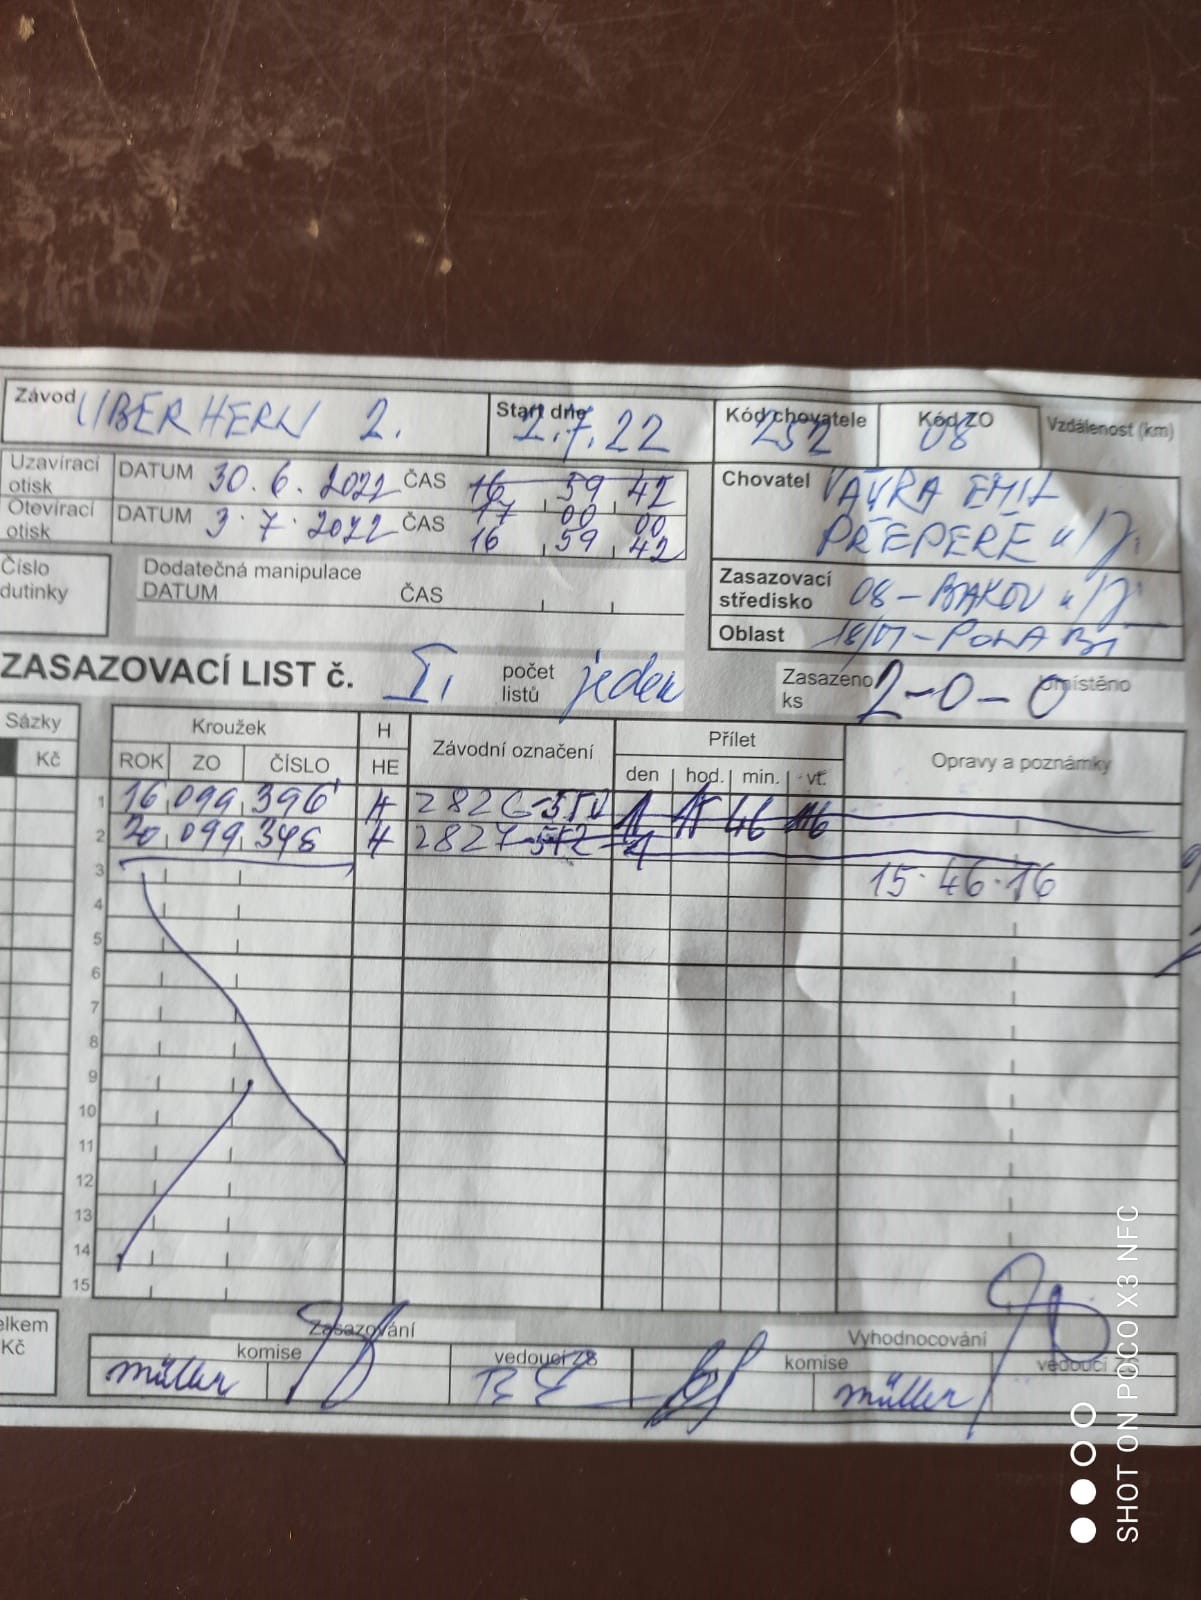 Závod ÜBERHERN 2. Start dne 2.7.22 Kód chovatele 252 Kód ZO 08 Vzdálenost (km)
Uzavírací otisk DATUM 30.6.2022 ČAS 16 59 42
17 00 00
Otevírací otisk DATUM 3.7.2022 ČAS 16 59 42
Chovatel VÁVRA EMIL
PŘEPEŘE n/J.
Číslo dutinky
Dodatečná manipulace
DATUM ČAS
Zasazovací středisko 08-BAKOV n/J
Oblast
ZASAZOVACÍ LIST č. I. počet listů jeden Zasazeno ks 2-0-0 Umístěno
Sázky Kroužek H Závodní označení Přílet Opravy a poznámky
Kč ROK ZO ČÍSLO HE den hod. min. vt.
1 16 099 396 H 2826 46
2 20 099 H 2827
3 15.46.16
4
5
6
7
8
9
10
11
12
13
14
15
elkem Kč
Zasazování Vyhodnocování
komise vedoucí ZS komise vedoucí ZS
müller müller
SHOT ON POCO X3 NFC